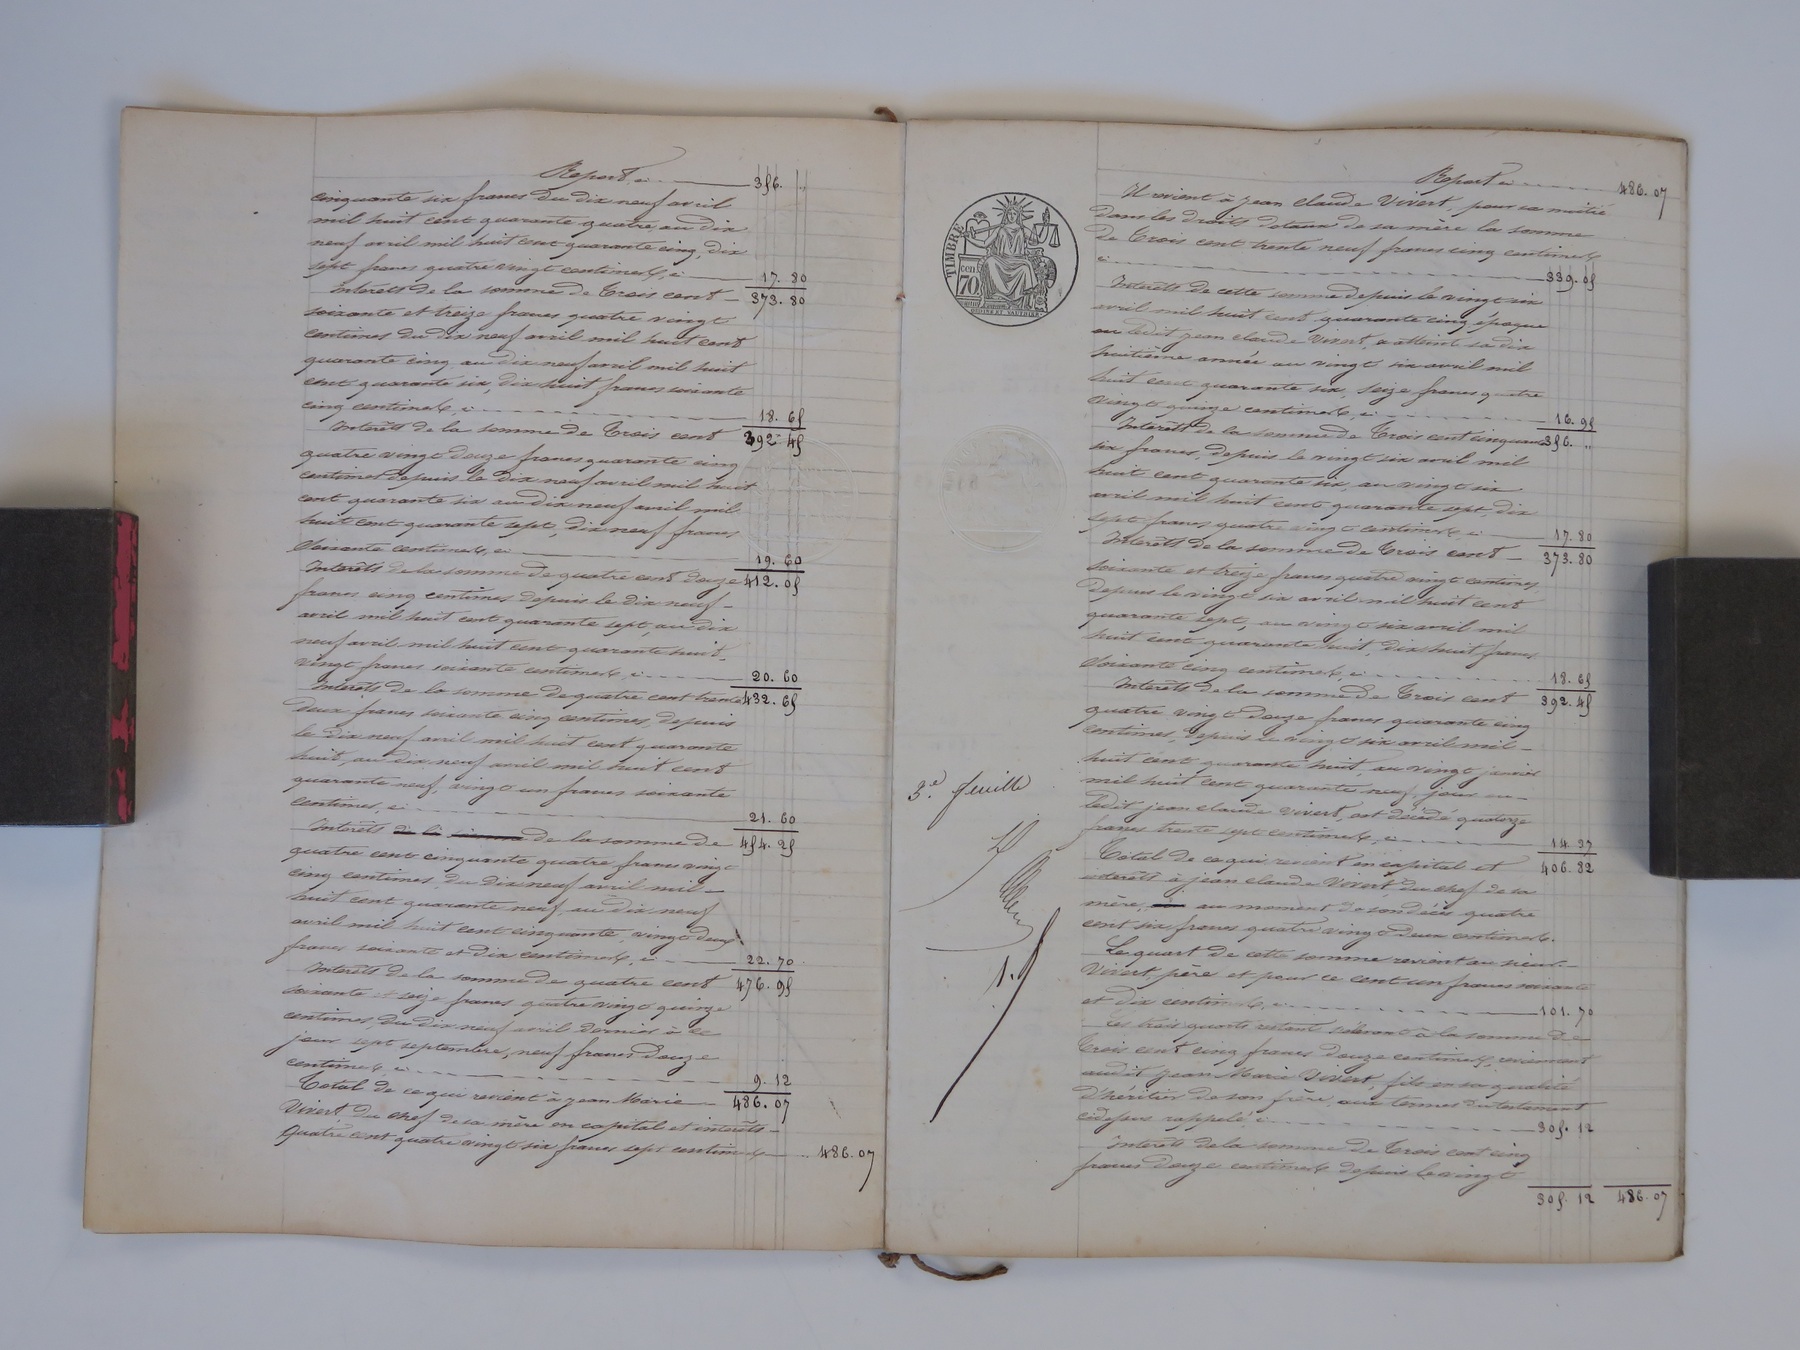 Report ci 356. "
cinquante six francs du dix neuf avril
mil huit cent quarante quatre, au dix
neuf avril mil huit cent quarante cinq, dix
sept francs quatre vingt centimes, ci 17. 80
Intérêts de la somme de Trois cent 373. 80
soixante et treize francs quatre vingt
centimes du dix neuf avril mil huit cent
quarante cinq, au dix neuf avril mil huit
cent quarante six, dix huit francs soixante
cinq centimes, ci 18. 65
Intérêts de la somme de Trois cent 392. 45
quatre vingt douze francs quarante cinq
centimes depuis le dix neuf avril mil huit
cent quarante six au dix neuf avril mil
huit cent quarante sept, dix neuf francs
soixante centimes, ci 19. 60
Intérêts de la somme de quatre cent douze 412. 05
francs cinq centimes depuis le dix neuf
avril mil huit cent quarante sept, au dix
neuf avril mil huit cent quarante huit,
vingt francs soixante centimes, ci 20. 60
Intérêts de la somme de quatre cent trente 432. 65
deux francs soixante cinq centimes, depuis
le dix neuf avril mil huit cent quarante
huit, au dix neuf avril mil huit cent
quarante neuf, vingt un francs soixante
centimes, ci 21. 60
Intérêts de la somme de 454. 25
quatre cent cinquante quatre francs vingt
cinq centimes, du dix neuf avril mil
huit cent quarante neuf, au dix neuf
avril mil huit cent cinquante, vingt deux
francs soixante et dix centimes, ci 22. 70
Intérêts de la somme de quatre cent 476. 95
soixante et seize francs quatre vingt quinze
centimes, du dix neuf avril dernier à ce
jour sept septembre, neuf francs douze
centimes, ci 9. 12
Total de ce qui revient à Jean Marie 486. 07
Vivert du chef de sa mère en capital et intérêts
quatre cent quatre vingt six francs sept centimes 486. 07
TIMBRE
cen.
70
3.e feuille
1.
Report ci 486. 07
Il revient à Jean Claude Vivert, pour sa moitié
dans les droits dotaux de sa mère la somme
de Trois cent trente neuf francs cinq centimes
ci 339. 05
Intérêts de cette somme depuis le vingt six
avril mil huit cent quarante cinq époque
ou ledit Jean Claude Vivert, a atteint sa dix
huitième année au vingt six avril mil
huit cent quarante six, seize francs quatre
vingt quinze centimes, ci 16. 95
Intérêts de la somme de Trois cent cinquante 356. "
six francs, depuis le vingt six avril mil
huit cent quarante six, au vingt six
avril mil huit cent quarante sept, dix
sept francs quatre vingt centimes, ci 17. 80
Intérêts de la somme de Trois cent 373. 80
soixante et treize francs quatre vingt centimes,
depuis le vingt six avril mil huit cent
quarante sept, au vingt six avril mil
huit cent quarante huit, dix huit francs
soixante cinq centimes, ci 18. 65
Intérêts de la somme de Trois cent 392. 45
quatre vingt douze francs quarante cinq
centimes, depuis le vingt six avril mil
huit cent quarante huit, au vingt janvier
mil huit cent quarante neuf, jour ou
ledit Jean Claude Vivert, est décédé quatorze
francs trente sept centimes, ci 14. 37
Total de ce qui revient en capital et 406. 82
intérêts à Jean Claude Vivert, du chef de sa
mère, au moment de son décès quatre
cent six francs quatre vingt deux centimes.
Le quart de cette somme revient au sieur
Vivert père et pour ce cent un francs soixante
et dix centimes, ci 101. 70
Les trois quarts restant s'élevant à la somme de
Trois cent cinq francs douze centimes, reviennent
audit Jean Marie Vivert, fils en sa qualité
d'héritier de son frère, aux termes du testament
cidessus rappelé ci 305. 12
Intérêts de la somme de Trois cent cinq
francs douze centimes depuis le vingt
305. 12 486. 07